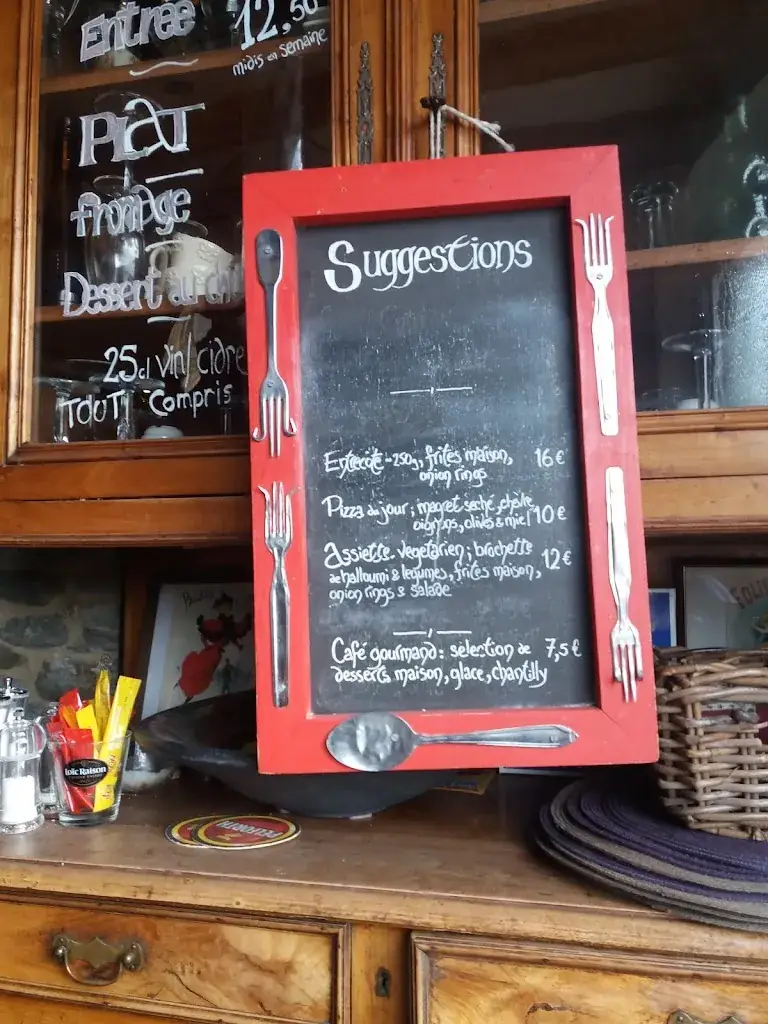 Entrée
12,50
midis en semaine
Plat
fromage
Dessert au
25cl vin/cidre
Tout compris
Suggestions
Entrecôte - 250g, frites maison, 16€
onion rings
Pizza du jour; magret séché, chèvre
oignons, olives & miel 10€
Assiette végétarien; brochette 12€
de halloumi & légumes, frites maison,
onion rings & salade
Café gourmand: sélection de 7,5€
desserts maison, glace, chantilly
Loïc Raison